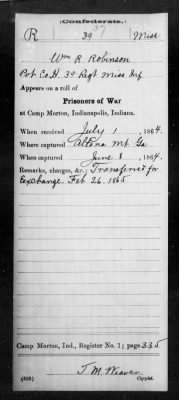 Confederate.
R 39 Miss
Wm R Robinson
Pvt Co H. 39 Regt Miss Inf
Appears on a roll of
Prisoners of War
at Camp Morton, Indianapolis, Indiana.
When received July 1, 1864.
Where captured Altona Mt Ga
When captured June 8, 1864.
Remarks, charges, &c.: Transferred for
Exchange. Feb 26. 1865
Camp Morton, Ind., Register No. 1; page 335
T. M. Weaver
(639) Copyist.